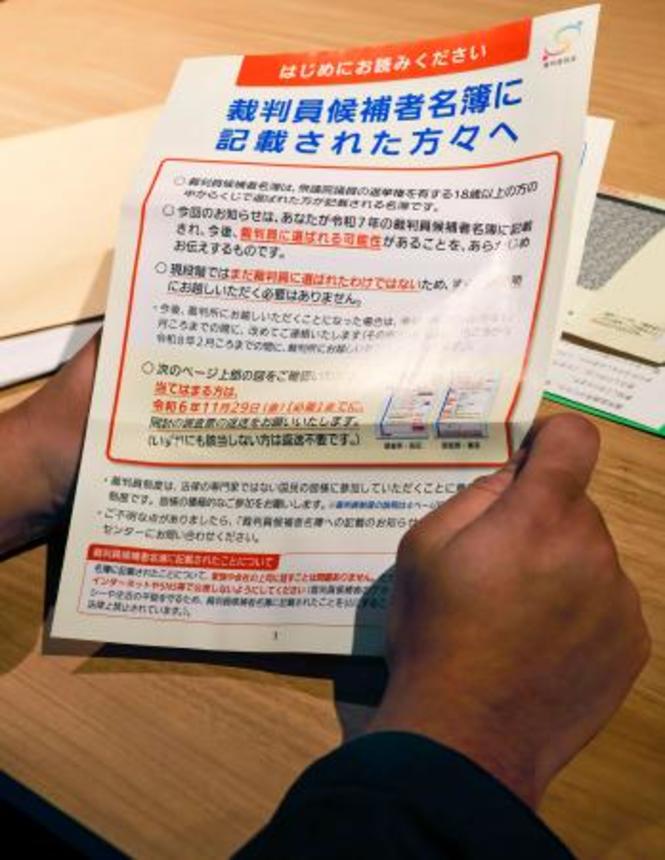 はじめにお読みください
裁判員候補者名簿に
記載された方々へ
○ 裁判員候補者名簿は、衆議院議員の選挙権を有する18歳以上の方の
中からくじで選ばれた方が記載される名簿です。
○ 今回のお知らせは、あなたが令和7年の裁判員候補者名簿に記載
され、今後、裁判員に選ばれる可能性があることを、あらかじめ
お伝えするものです。
○ 現段階ではまだ裁判員に選ばれたわけではないため、
にお越しいただく必要はありません。
・今後、裁判所にお越しいただくことになった場合は、
月ころまでの間に、改めてご連絡いたします
令和8年2月ころまでの間に、裁判所にお越しい
○ 次のページ上部の図をご確認い
当てはまる方は、
令和6年11月29日(金)【必着】までに、
同封の調査票の返送をお願いいたします。
(いずれにも該当しない方は返送不要です。)
・裁判員制度は、法律の専門家ではない国民の皆様に参加していただくことに
制度です。皆様の積極的なご参加をお願いします。
・ご不明な点がありましたら、「裁判員候補者名簿への記載のお知らせ
センターにお問い合わせください。
裁判員候補者名簿に記載されたことについて
名簿に記載されたことについて、家族や会社の上司に話すことは問題ありません。
インターネットやSNS等で公表しないようにしてください
シーや生活の平穏を守るため、裁判員候補者名簿に記載されたことを公にするこ
法律上禁止されています。)。
1